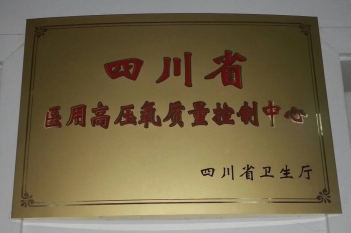 四川省
医用高压氧质量控制中心
四川省卫生厅